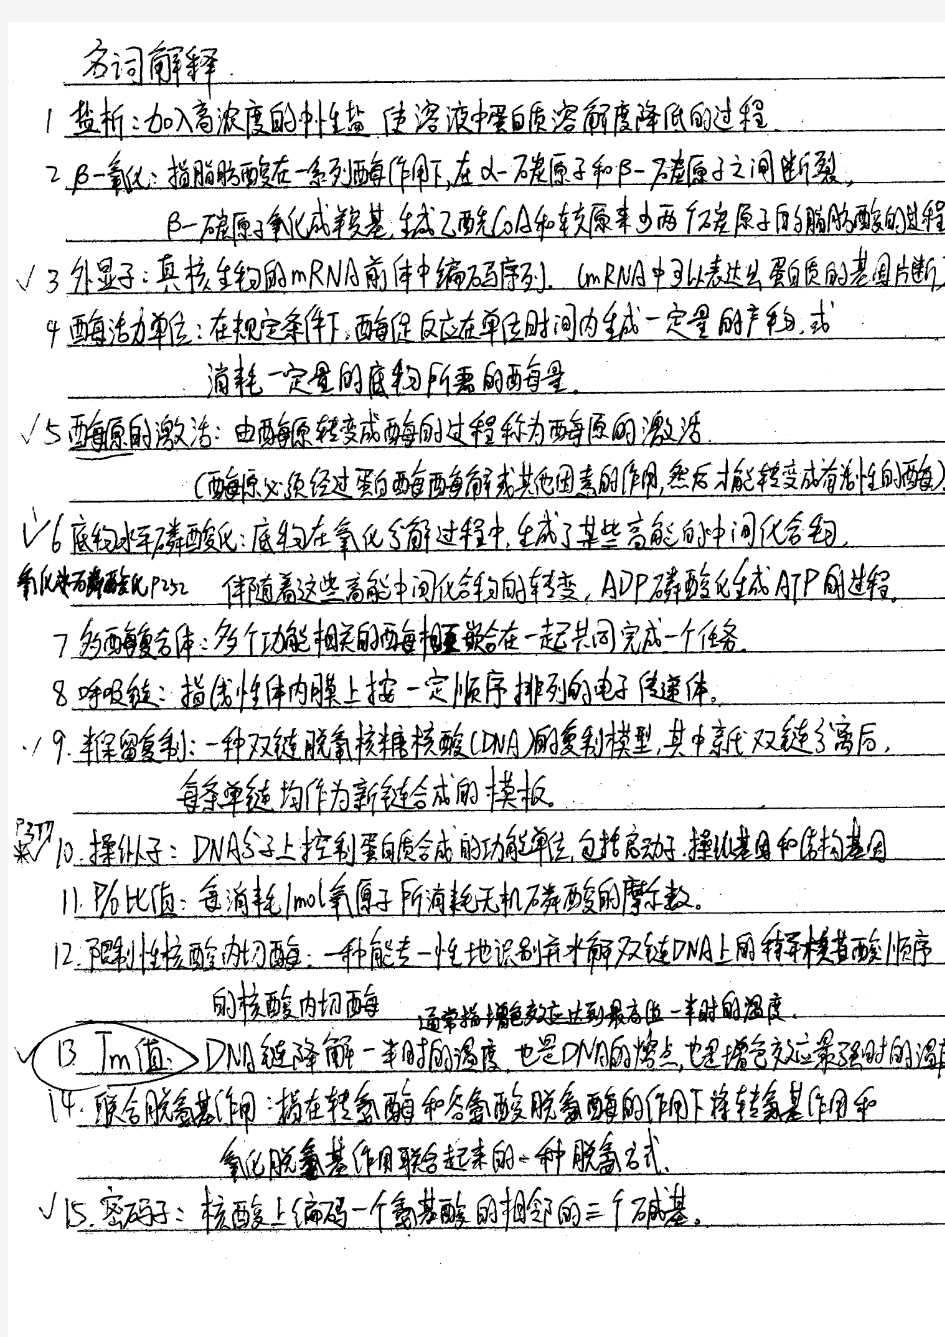 名词解释
1 盐析：加入高浓度的中性盐 使溶液中蛋白质溶解度降低的过程.
2 β-氧化：指脂肪酸在一系列酶作用下,在α-碳原子和β-碳原子之间断裂,
β-碳原子氧化成羧基,生成乙酰CoA和较原来少两个碳原子的脂肪酸的过程
√ 3 外显子：真核生物的mRNA前体中编码序列. (mRNA中可以表达出蛋白质的基因片断)
4 酶活力单位：在规定条件下,酶促反应在单位时间内生成一定量的产物,或
消耗一定量的底物所需的酶量。
√5 酶原的激活：由酶原转变成酶的过程称为酶原的激活.
(酶原必须经过蛋白酶酶解或其他因素的作用,然后才能转变成有活性的酶)
√6 底物水平磷酸化：底物在氧化分解过程中,生成了某些高能的中间化合物,
氧化水平磷酸化P252 伴随着这些高能中间化合物的转变, ADP磷酸化生成ATP的过程.
7 多酶复合体：多个功能相关的酶相互嵌合在一起共同完成一个任务.
8 呼吸链：指线性体内膜上按一定顺序排列的电子传递体。
√ 9. 半保留复制：一种双链脱氧核糖核酸(DNA)的复制模型,其中亲代双链分离后,
每条单链均作为新链合成的模板。
※√ 10. 操纵子：DNA分子上控制蛋白质合成的功能单位,包括启动子.操纵基因和结构基因
11. P/O比值：每消耗1mol氧原子所消耗无机磷酸的摩尔数。
12. 限制性核酸内切酶：一种能专一性地识别并水解双链DNA上的特异核苷酸顺序
的核酸内切酶 通常指增色效应达到最高值一半时的温度.
√ 13 Tm值: DNA链降解一半时的温度,也是DNA的熔点,也是增色效应最强时的温度
14. 联合脱氨基作用：指在转氨酶和谷氨酸脱氨酶的作用下将转氨基作用和
氧化脱氨基作用联合起来的一种脱氨方式.
√15. 密码子：核酸上编码一个氨基酸的相邻的三个碱基。